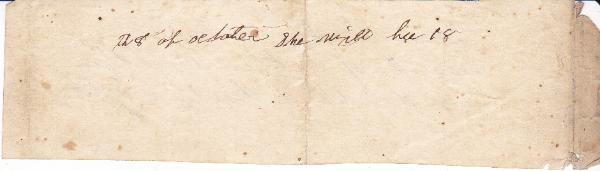 th 8 of october she will be 18